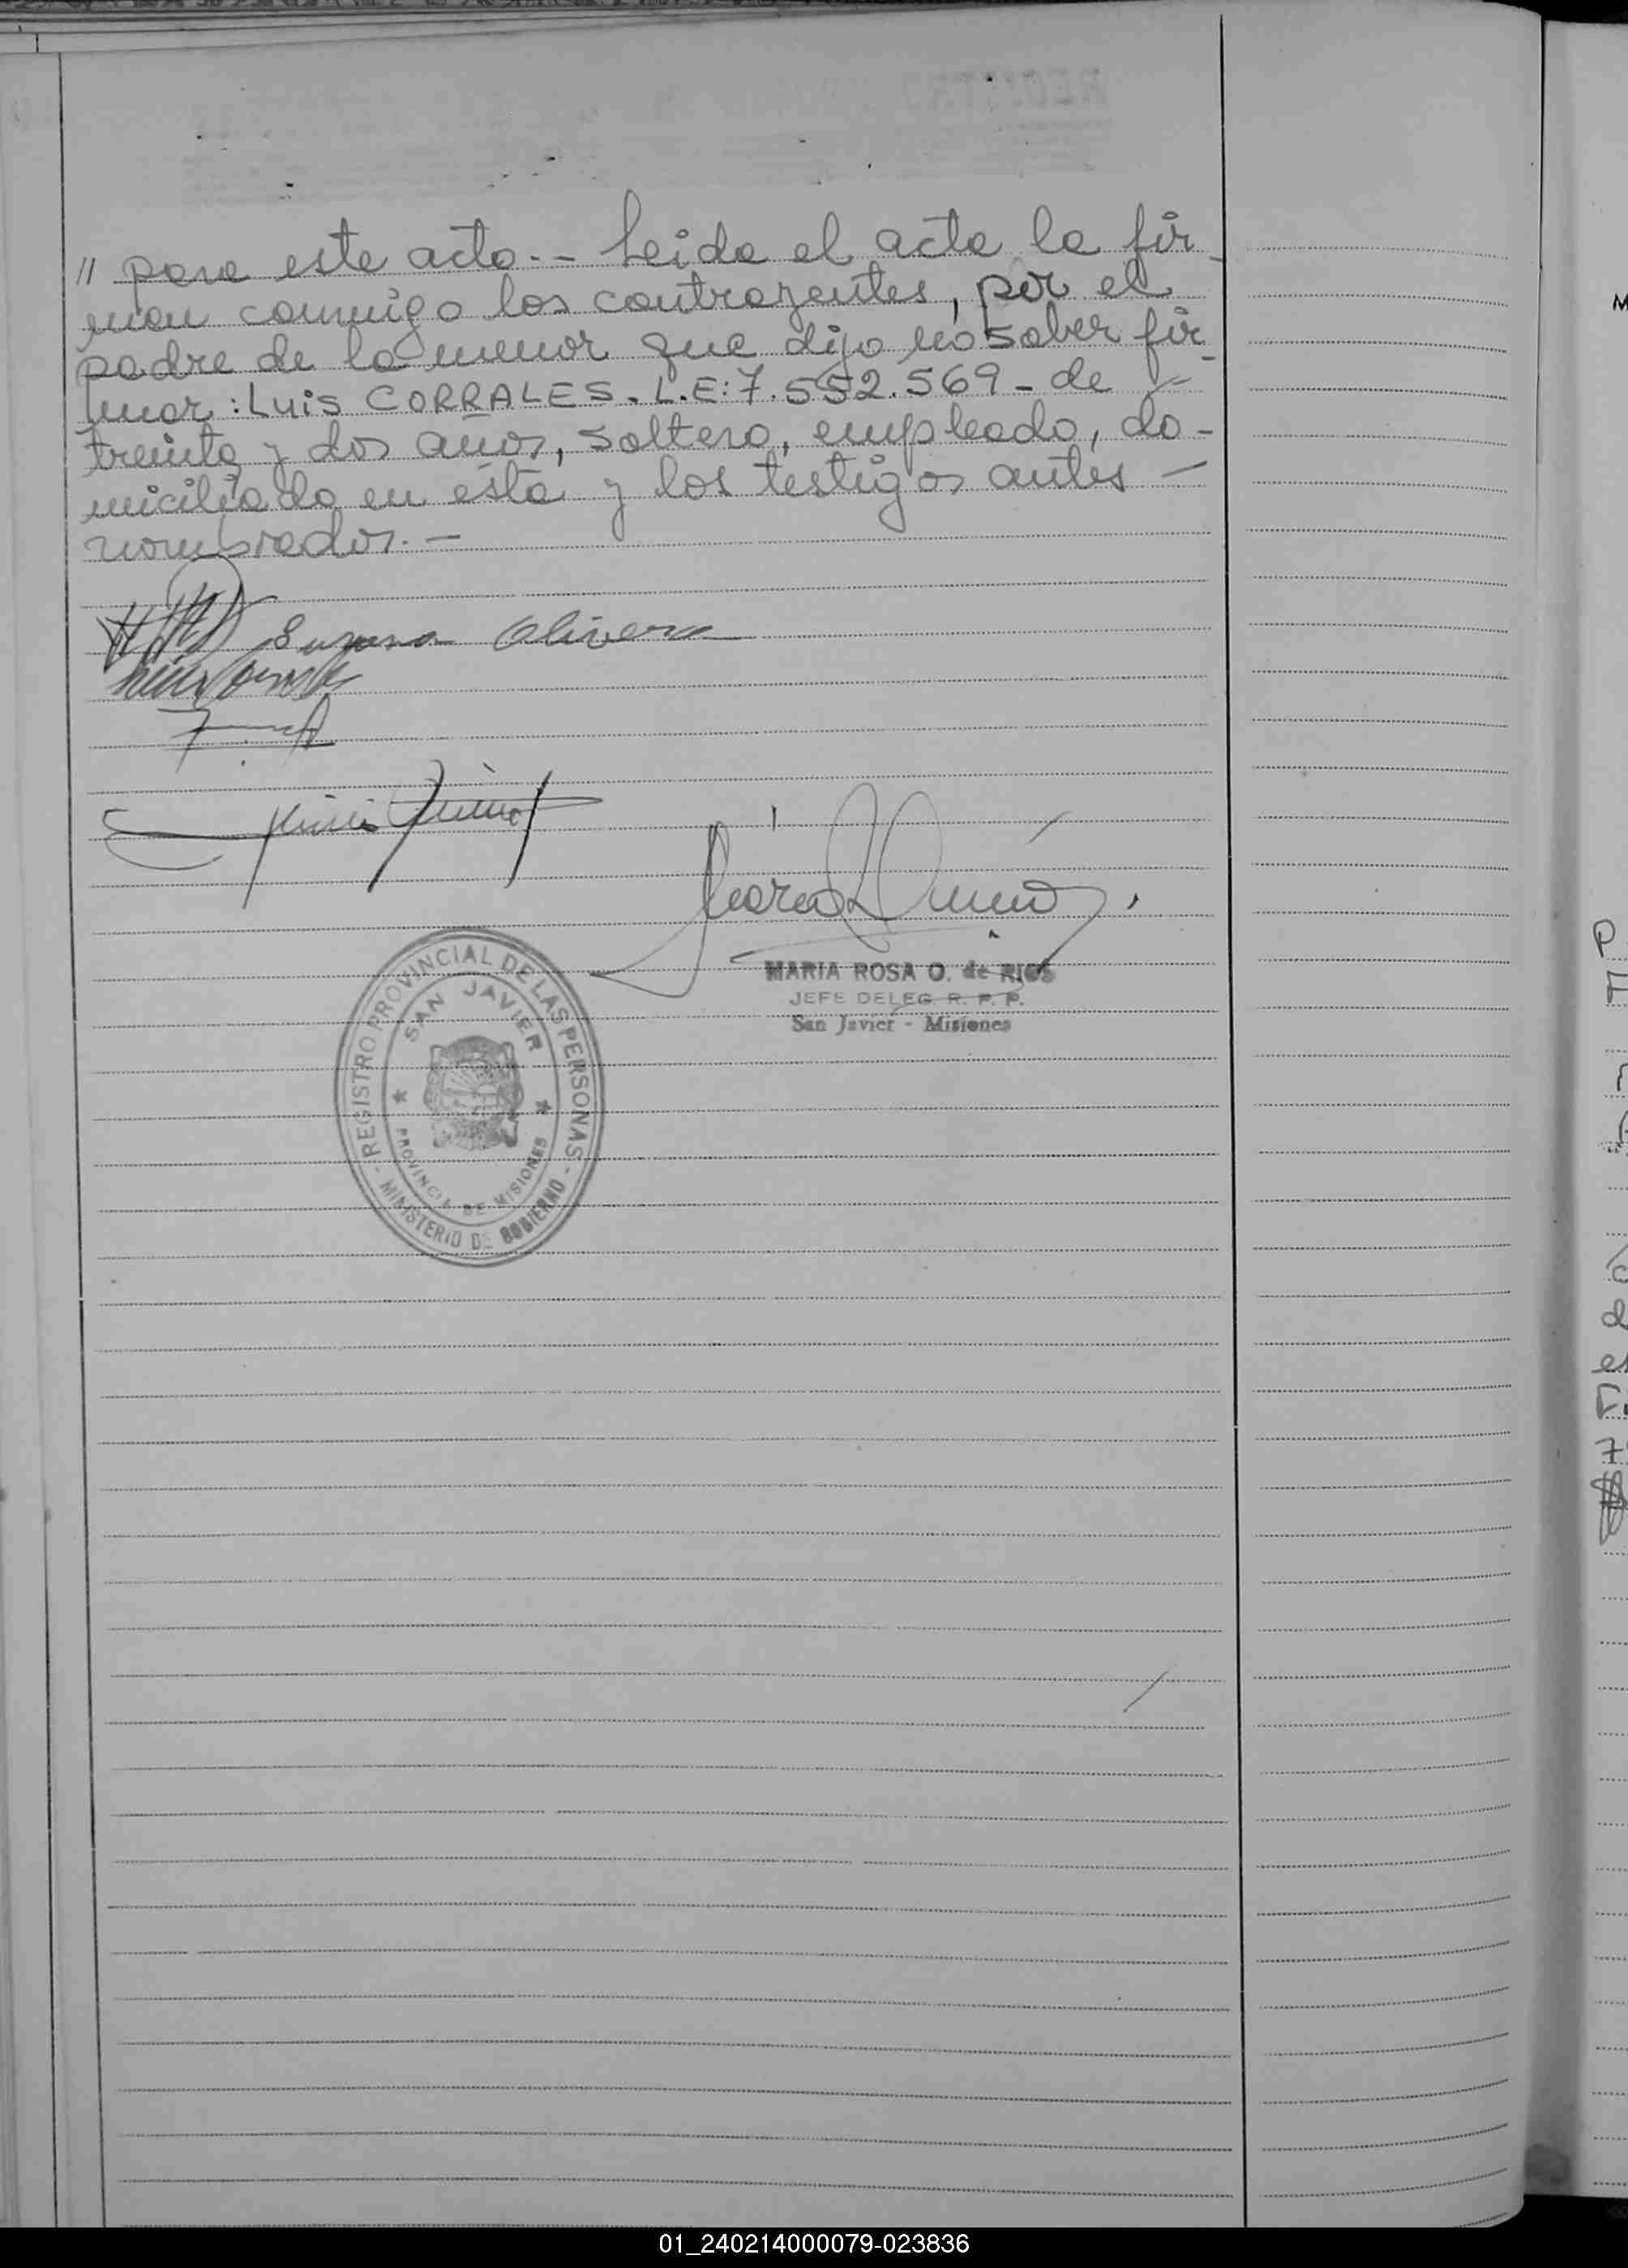 // para este acto.-- Leida el acta la fir-
man conmigo los contrayentes, por el
padre de la menor que dijo no saber fir-
mar: Luis CORRALES. L.E: 7.552.569- de -
treinta y dos años, soltero, empleado, do-
miciliado en ésta y los testigos antes -
nombrados.-
Susana Olivera
MARIA ROSA O. de RIOS
JEFE DELEG. R. P. P.
San Javier - Misiones
REGISTRO PROVINCIAL DE LAS PERSONAS - MINISTERIO DE GOBIERNO -
SAN JAVIER
PROVINCIA DE MISIONES
01_240214000079-023836